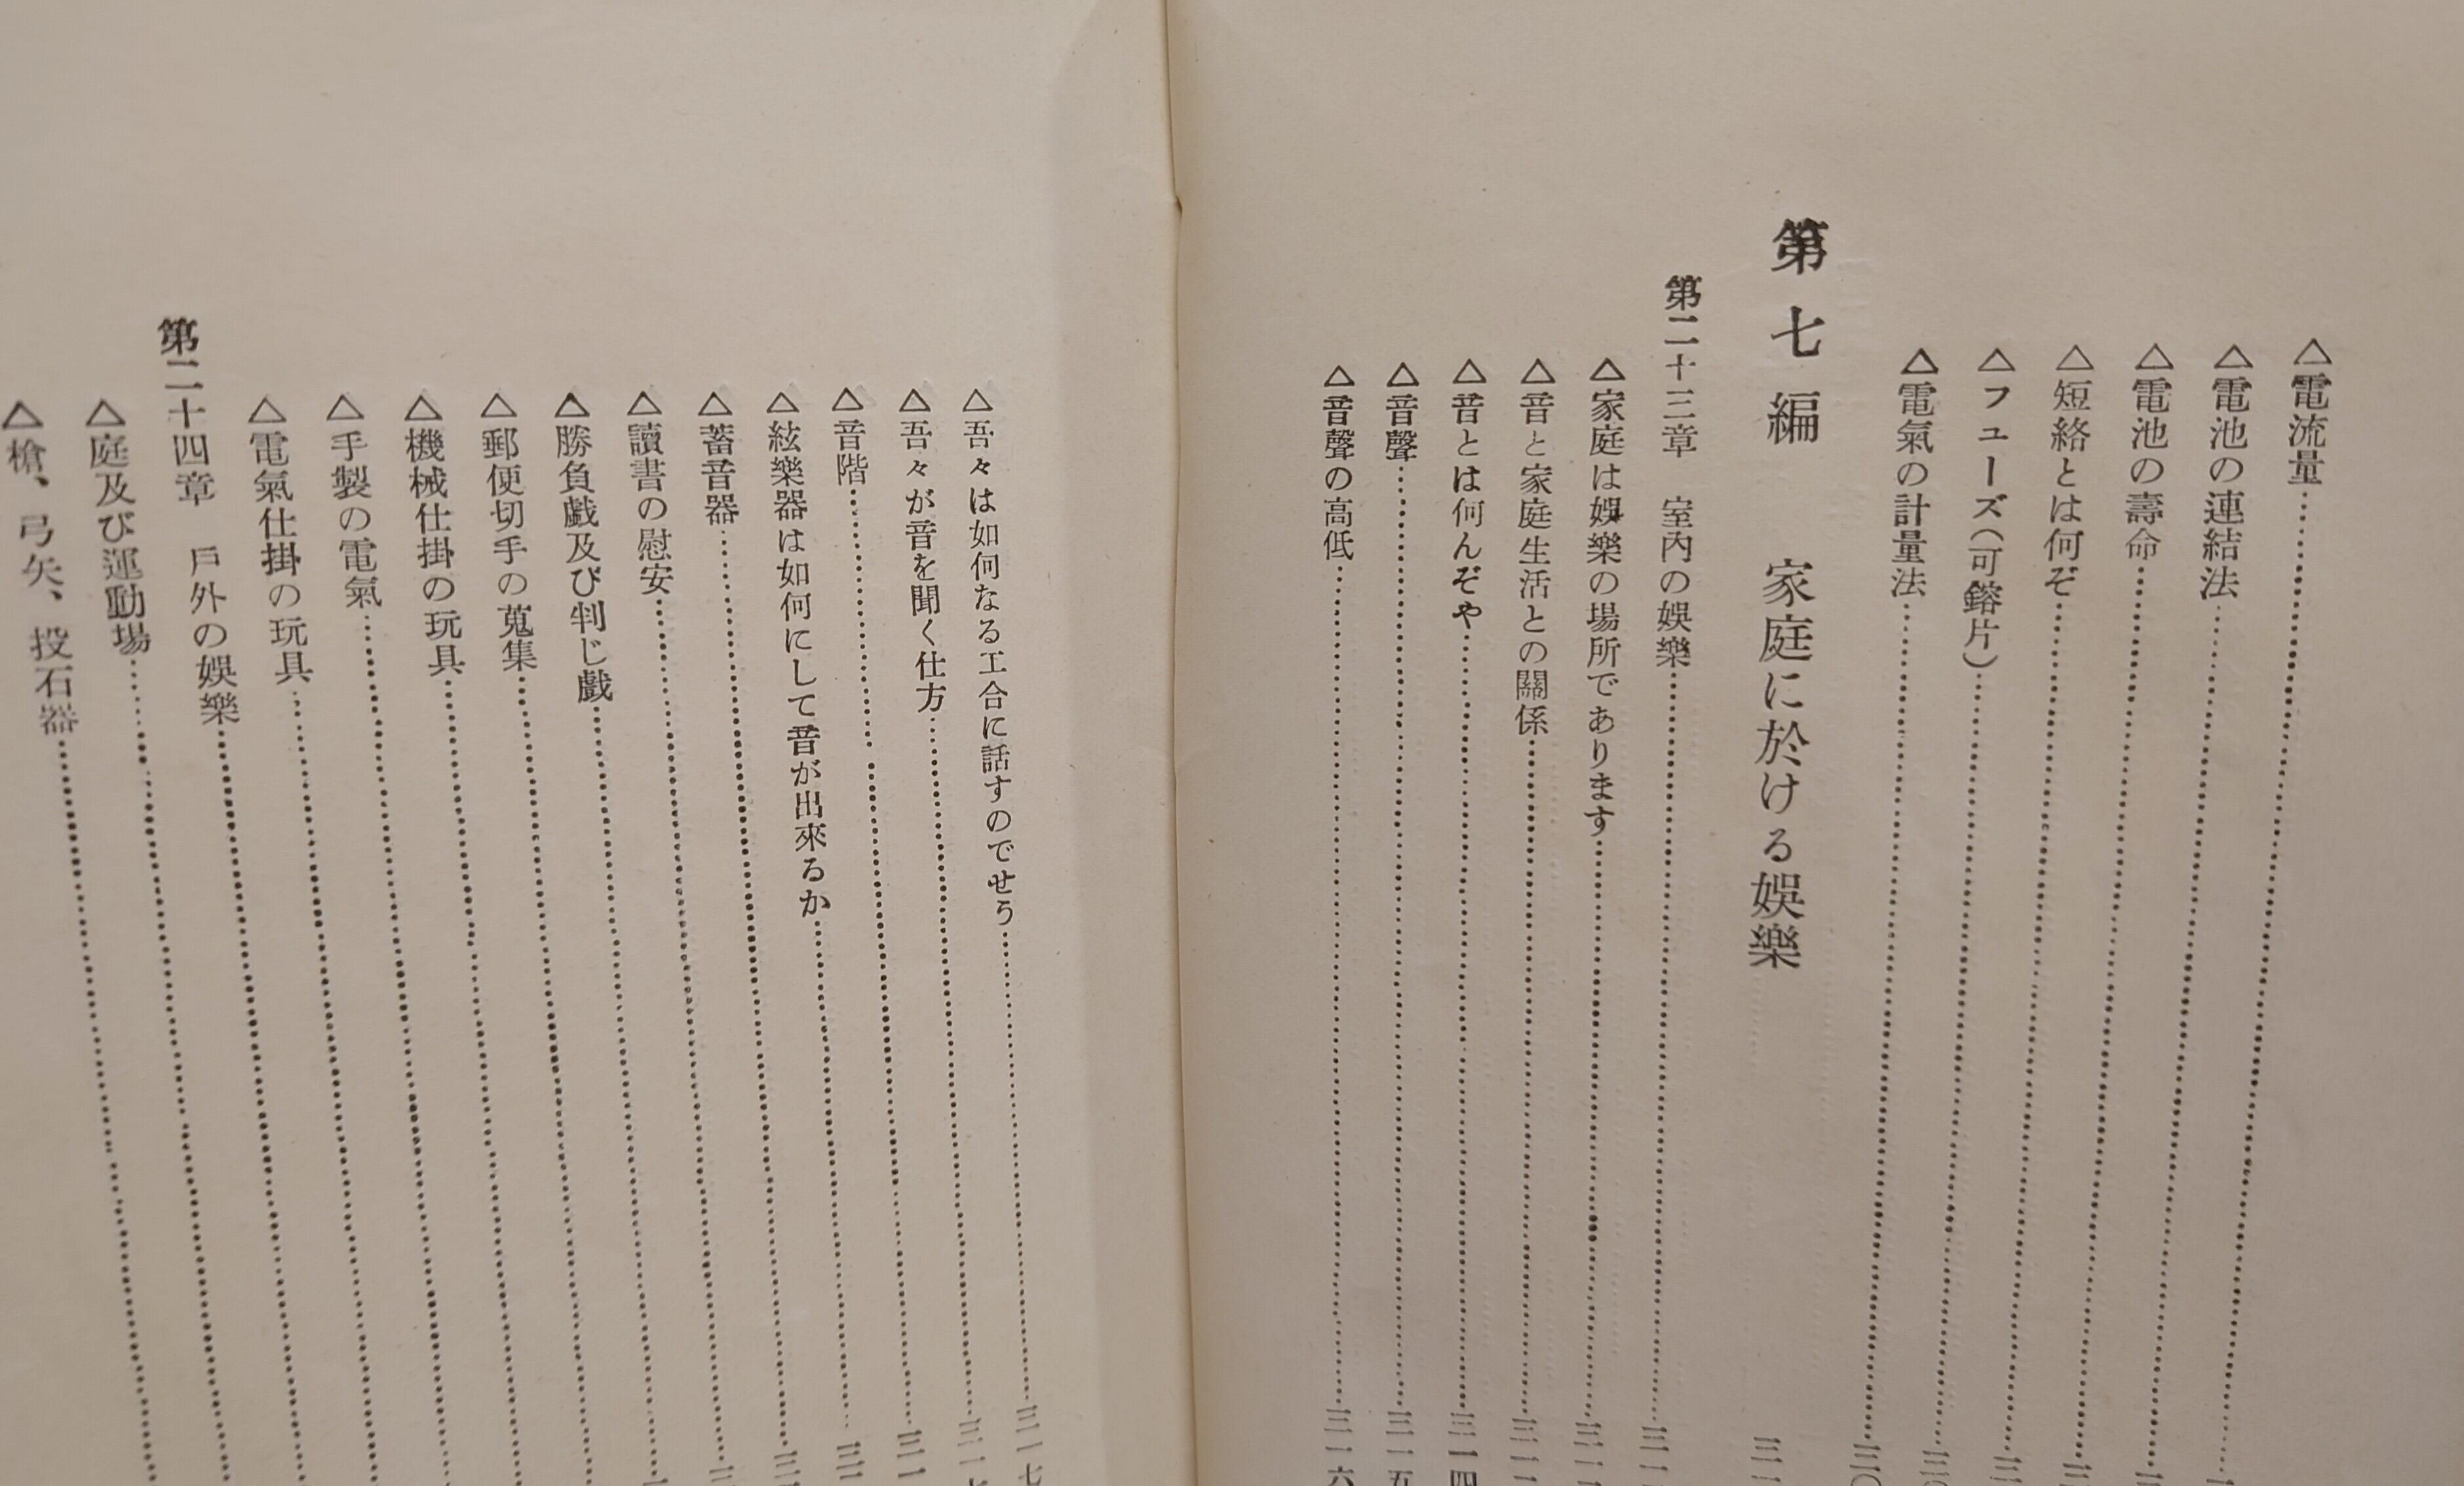 △電流量
△電池の連結法
△電池の壽命
△短絡とは何ぞ
△フューズ(可鎔片)
△電氣の計量法
第七編 家庭に於ける娯樂
第二十三章 室內の娯樂
△家庭は娯樂の場所であります
△音と家庭生活との關係
△音とは何んぞや……三一四
△音聲……三一五
△音聲の高低……三一六
△吾々は如何なる工合に話すのでせう……三一七
△吾々が音を聞く仕方……三一七
△音階
△絃樂器は如何にして音が出來るか
△蓄音器
△讀書の慰安
△勝負戲及び判じ戲
△郵便切手の蒐集
△機械仕掛の玩具
△手製の電氣
△電氣仕掛の玩具
第二十四章 戶外の娯樂
△庭及び運動場
△槍、弓矢、投石器